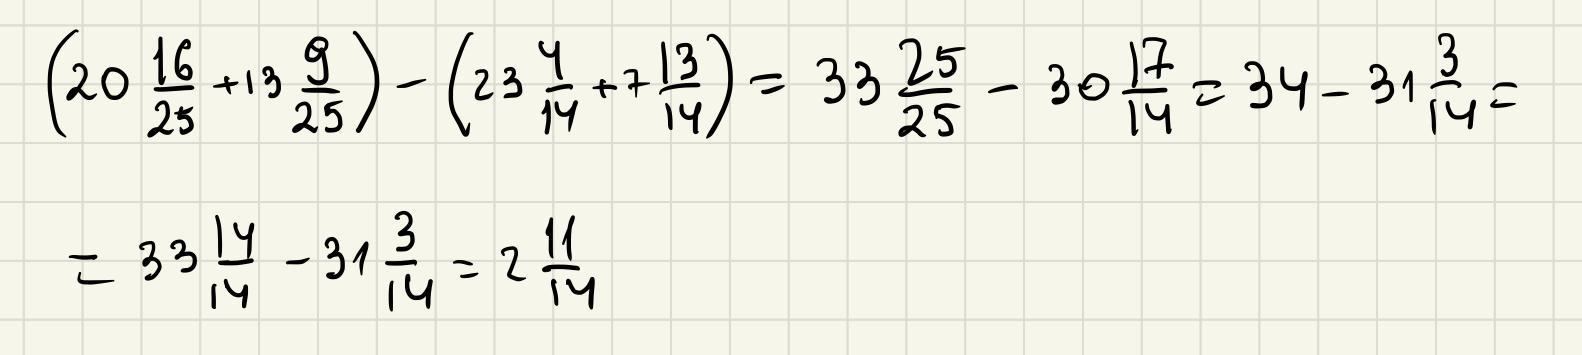 (20 16/25 + 13 9/25) - (23 4/14 + 7 13/14) = 33 25/25 - 30 17/14 = 34 - 31 3/14 =
= 33 14/14 - 31 3/14 = 2 11/14